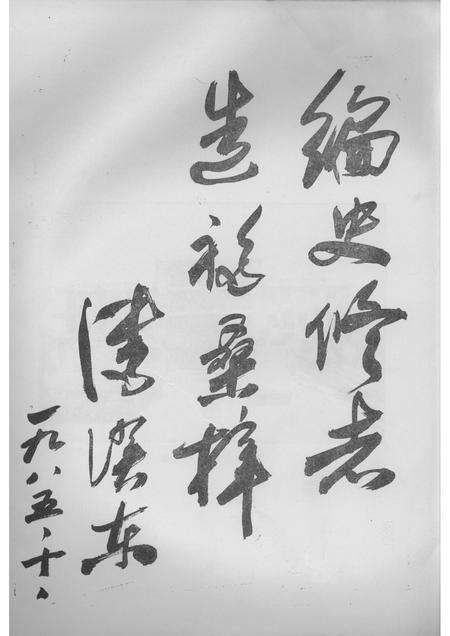 编史修志
造福桑梓
汉东
一九八五·十·